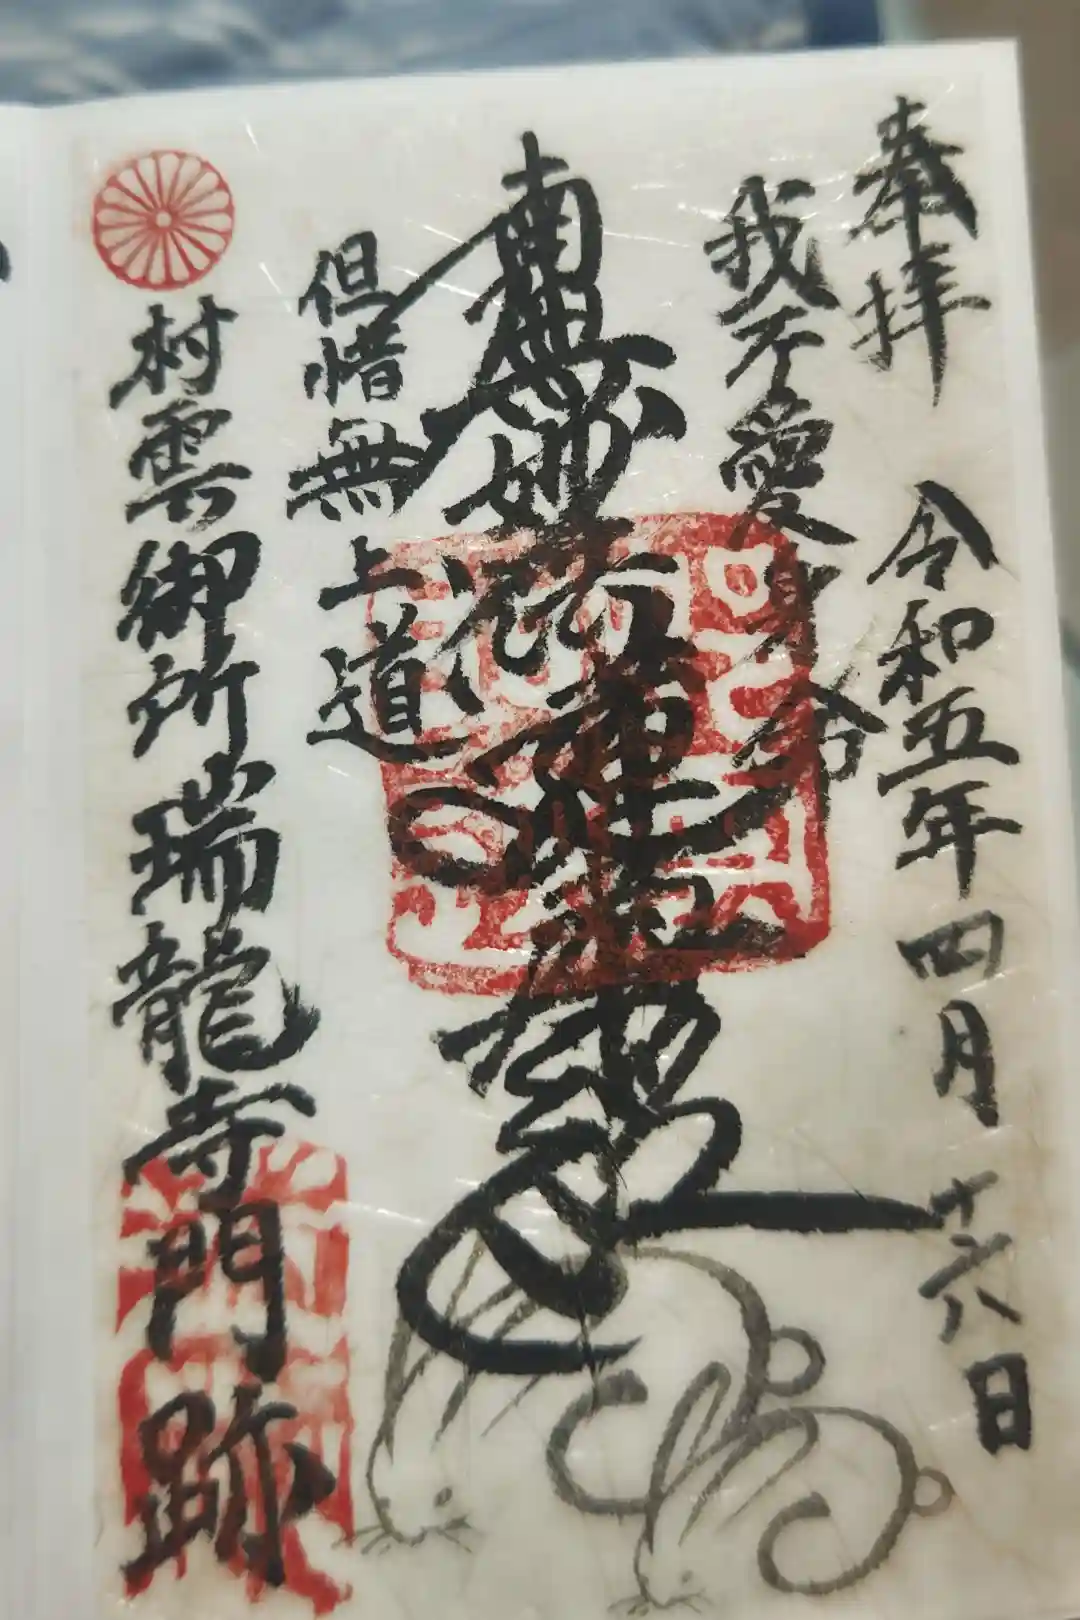 奉拝
令和五年四月十六日
我不愛身命
南無妙法蓮華経
但惜無上道
村雲御所瑞龍寺門跡